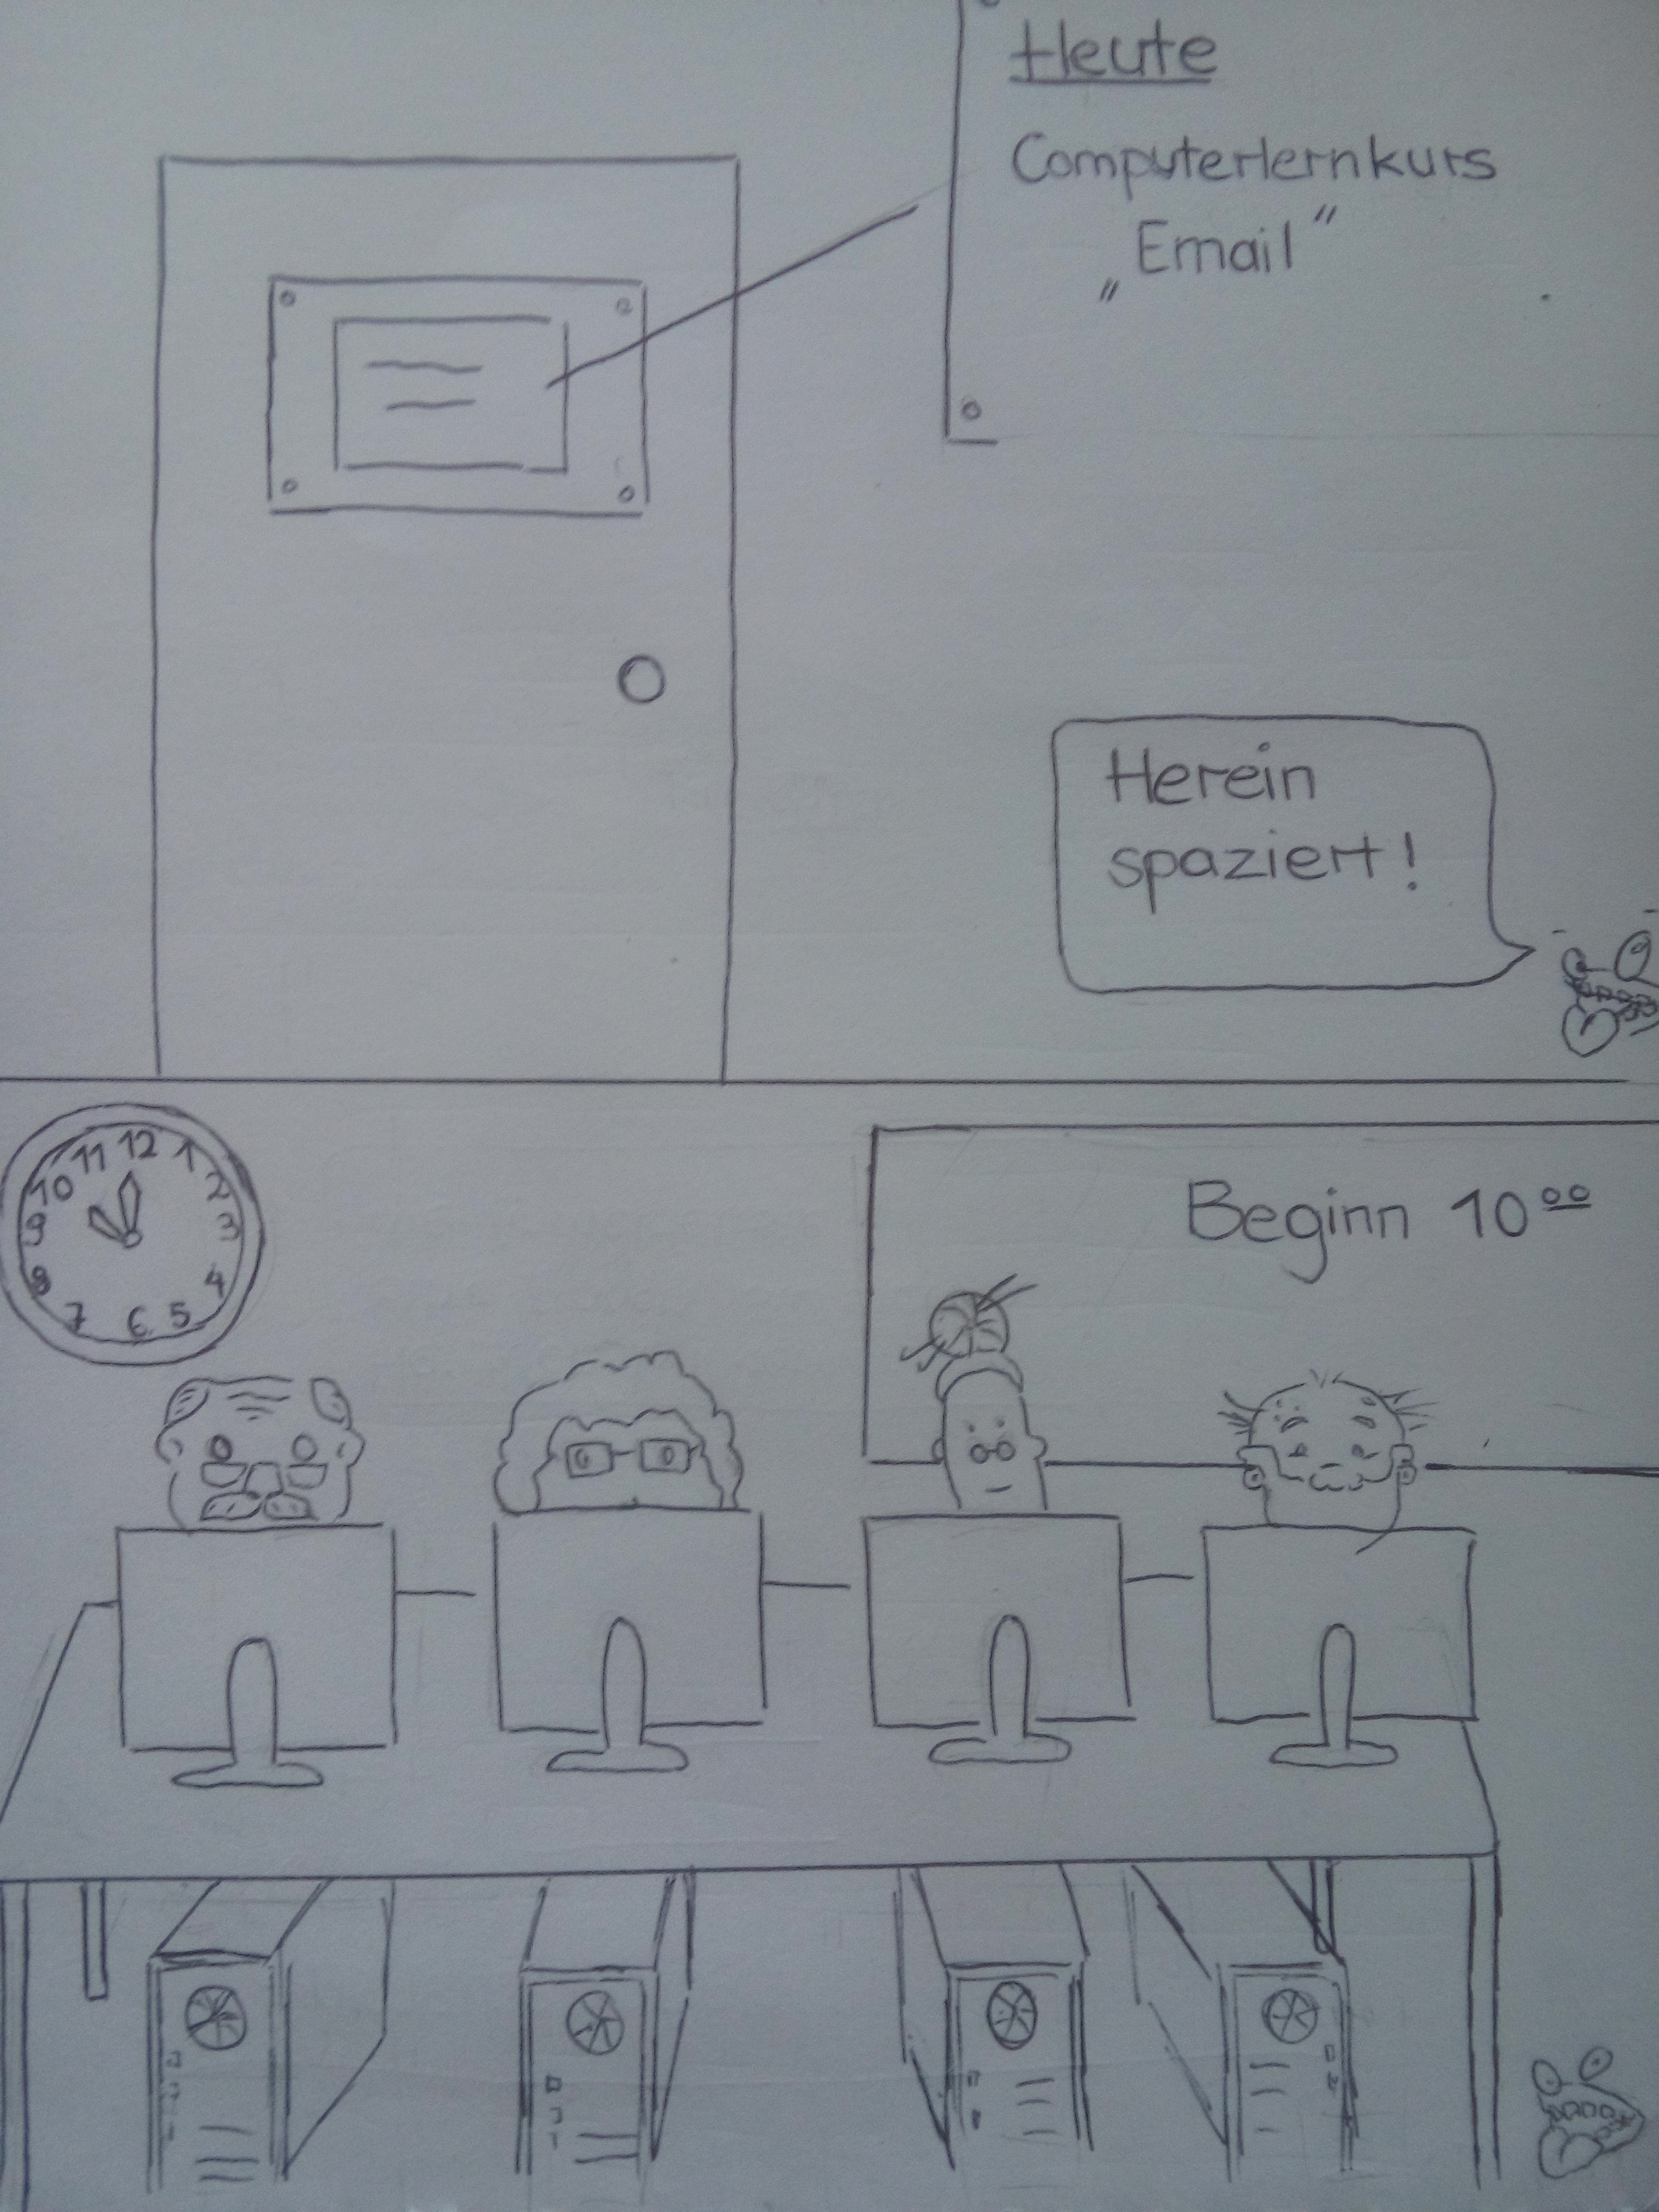 Heute
Computerlernkurs
„Email“
Herein
spaziert!
12
11
1
10
2
9
3
8
4
7
6
5
Beginn 10⁰⁰